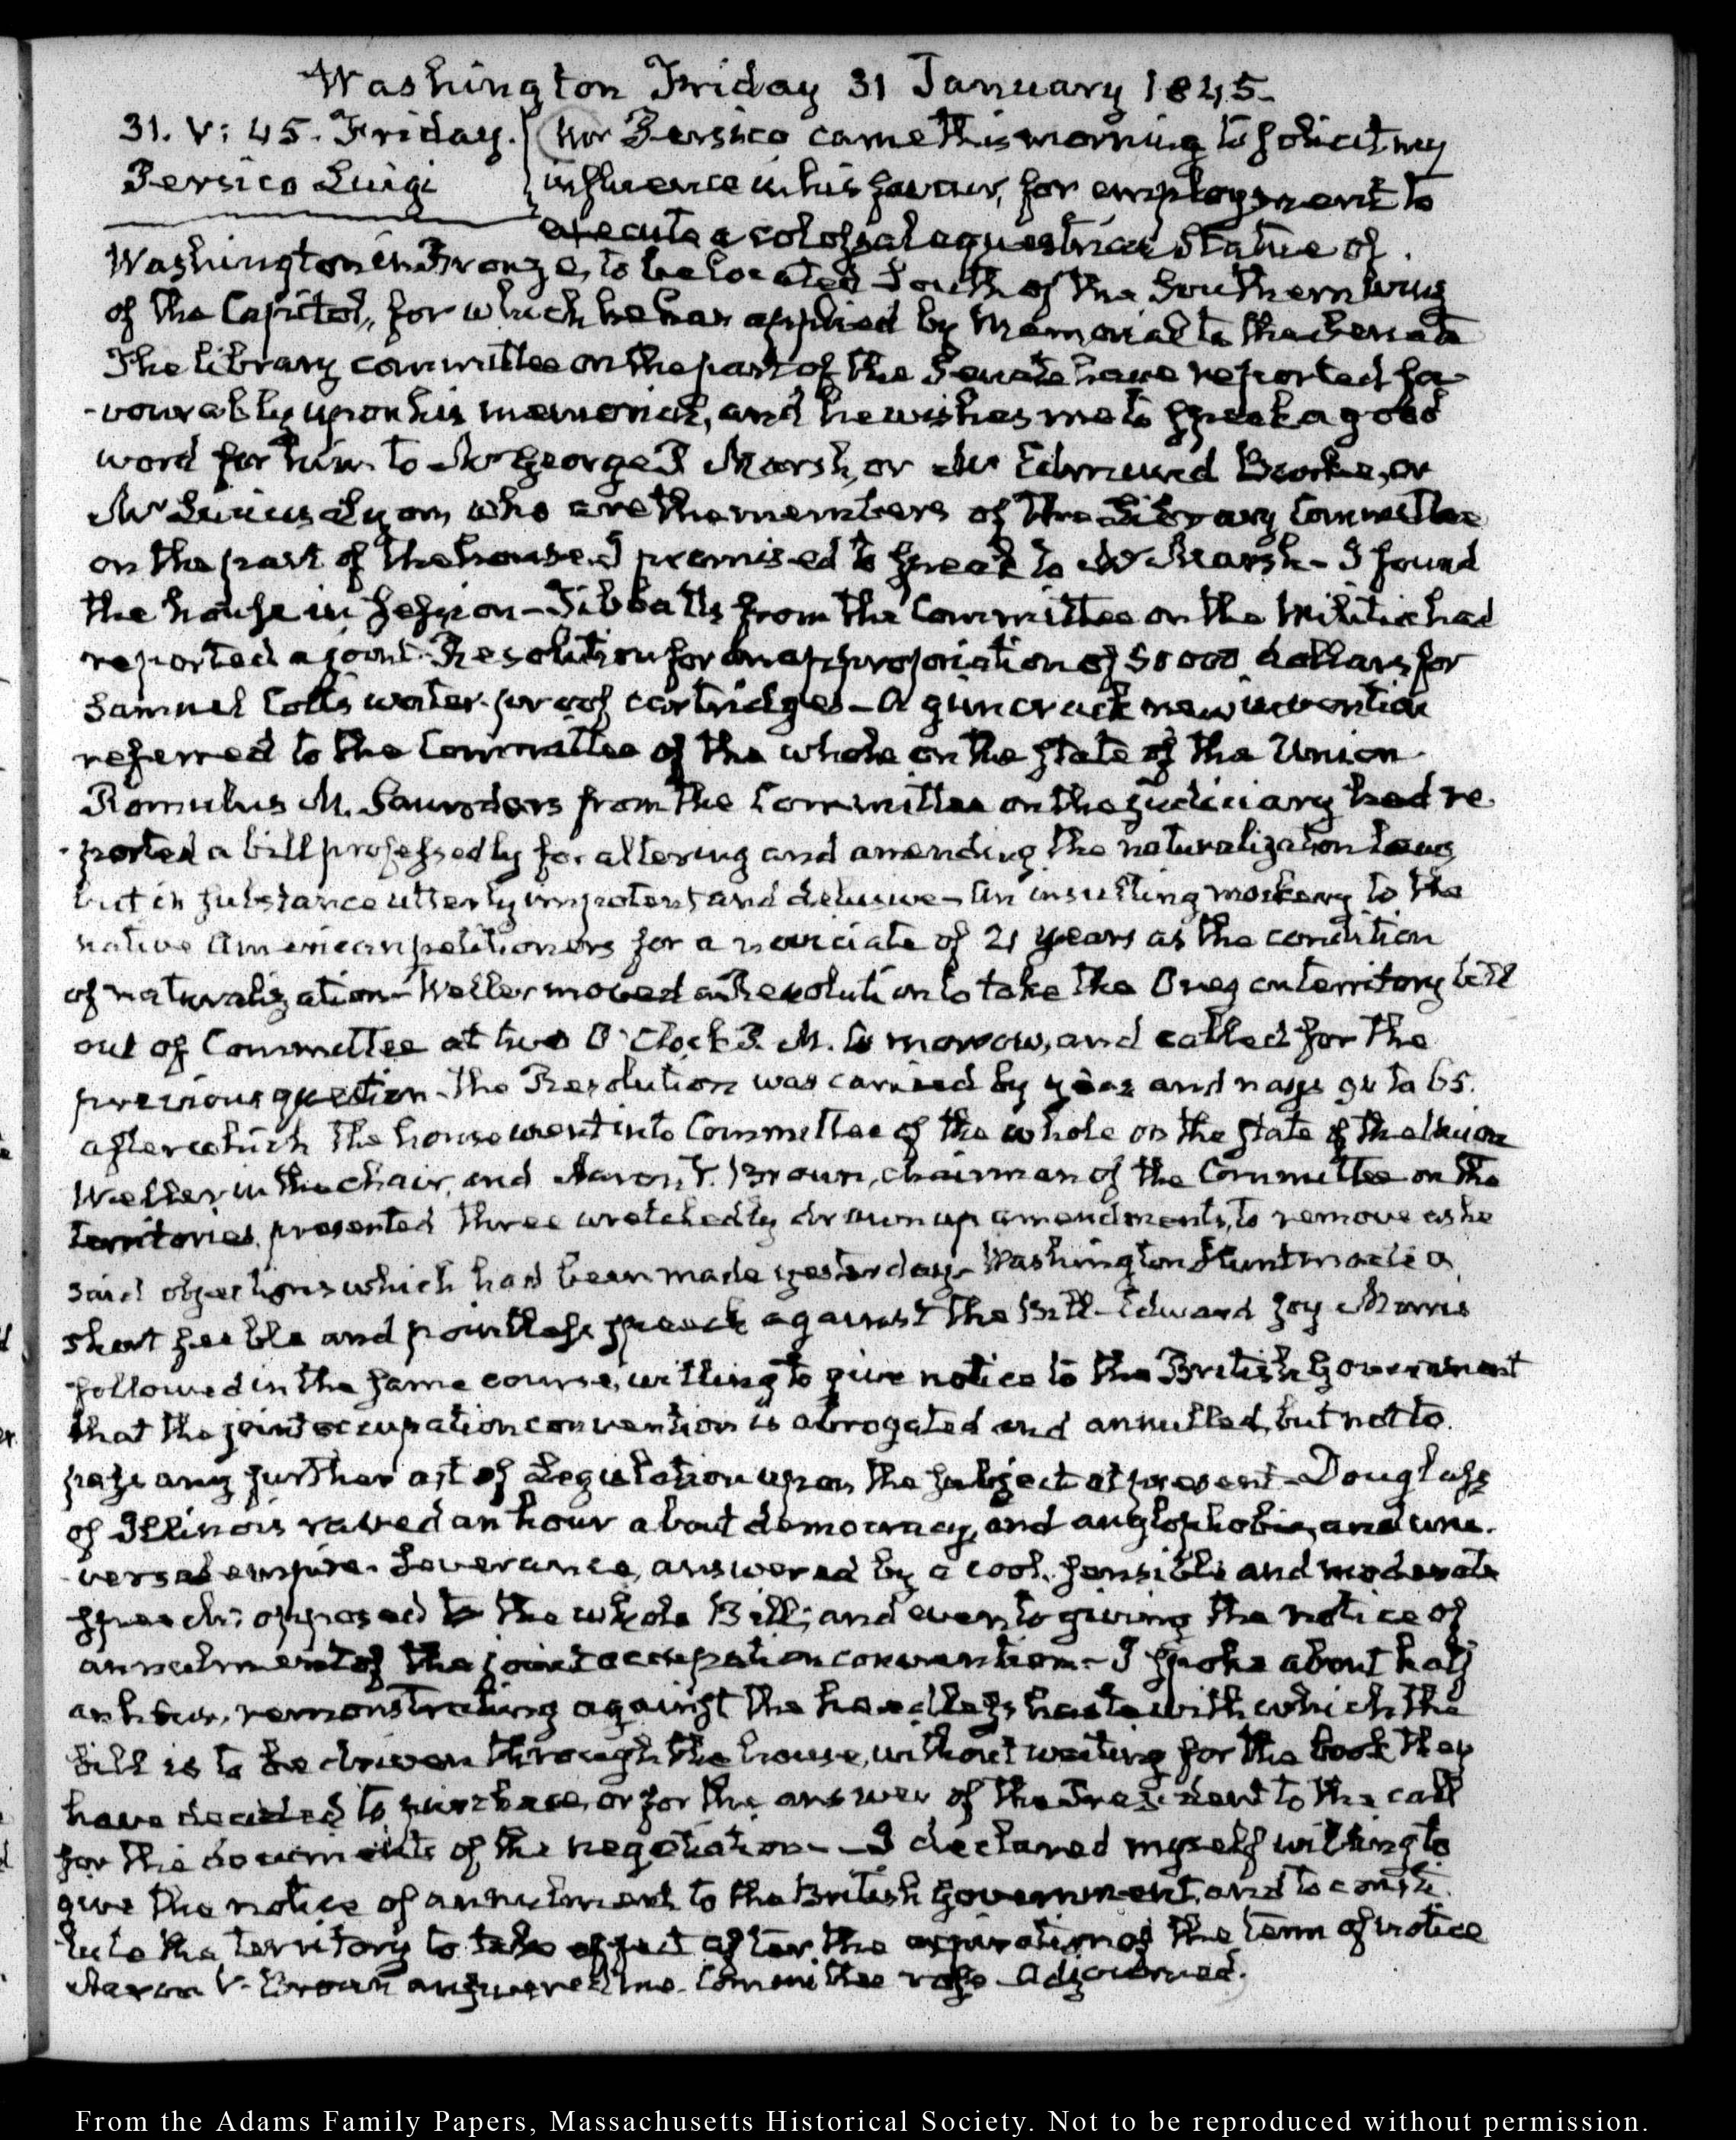 Washington Friday 31 January 1845.
31. V: 45. Friday.
Persico Luigi
Mr Persico came this morning to solicit my
influence in his favour, for employment to
execute a colossal equestrian Statue of
Washington in Bronze, to be located South of the Southern wing
of the Capitol, for which he has applied by Memorial to the Senate
The library committee on the part of the Senate have reported fa-
-vourably upon his memorial, and he wishes me to speak a good
word for him to Mr George P Marsh, or Mr Edmund Burke, or
Mr Lucius Lyon, who are the members of the Library Committee
on the part of the house. I promised to speak to Mr Marsh - I found
the house in session - Tibbatts from the Committee on the Militia had
reported a joint Resolution for an appropriation of 50000 dollars for
Samuel Colt's water-proof cartridges - A gimcrack new invention
referred to the Committee of the whole on the state of the Union
Romulus M. Saunders from the Committee on the judiciary had re
-ported a bill professedly for altering and amending the naturalization laws
but in substance utterly impotent and delusive - An insulting mockery to the
native American petitioners for a noviciate of 21 years as the condition
of naturalization - Weller moved a Resolution to take the Oregon territory bill
out of Committee at two O'Clock P. M. to morrow, and called for the
previous question - The Resolution was carried by yeas and nays to 65.
after which the house went into Committee of the whole on the state of the Union
Weller in the chair, and Aaron V. Brown, chairman of the Committee on the
Territories, presented three wretchedly drawn up amendments, to remove as he
said objections which had been made yesterday - Washington Hunt made a
short feeble and pointless speech against the Bill - Edward Joy Morris
followed in the same course, willing to give notice to the British Government
that the joint occupation convention is abrogated and annulled, but not to
pass any further act of Legislation upon the subject at present - Douglass
of Illinois raved an hour about democracy, and anglophobia, and uni-
-versal empire. Severance, answered by a cool, sensible and moderate
speech; opposed to the whole Bill; and even to giving the notice of
annulment of the joint occupation convention - I spoke about half
an hour, remonstrating against the heedless haste with which the
bill is to be driven through the house, without waiting for the book they
have decided to purchase, or for the answer of the President to the call
for the documents of the negotiation - I declared myself willing to
give the notice of annulment to the British Government, and to consti-
tute the territory to take effect after the expiration of the term of notice
Aaron V. Brown answered me. Committee rose - Adjourned.
From the Adams Family Papers, Massachusetts Historical Society. Not to be reproduced without permission.